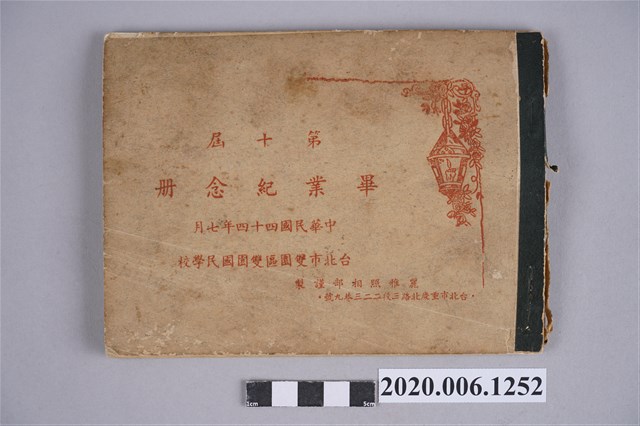 第十屆
畢業紀念冊
中華民國四十四年七月
台北市雙園區雙園國民學校
麗雅照相部謹製
台北市重慶北路三段二二三巷九號
1cm 5cm
2020.006.1252